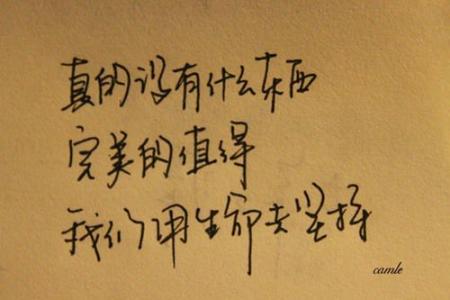 真的没有什么东西
完美的值得
我们用生命去坚持
camle